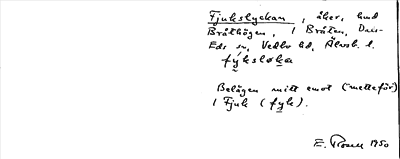 Fjukslyckan, åker, hmd
Bråthögen, 1 Bråten, Dals-
Eds sn, Vedbo hd, Älvsb. l.
fýksløka
Belägen mitt emot (metteför)
1 Fjuk (fyk).
E. 1950